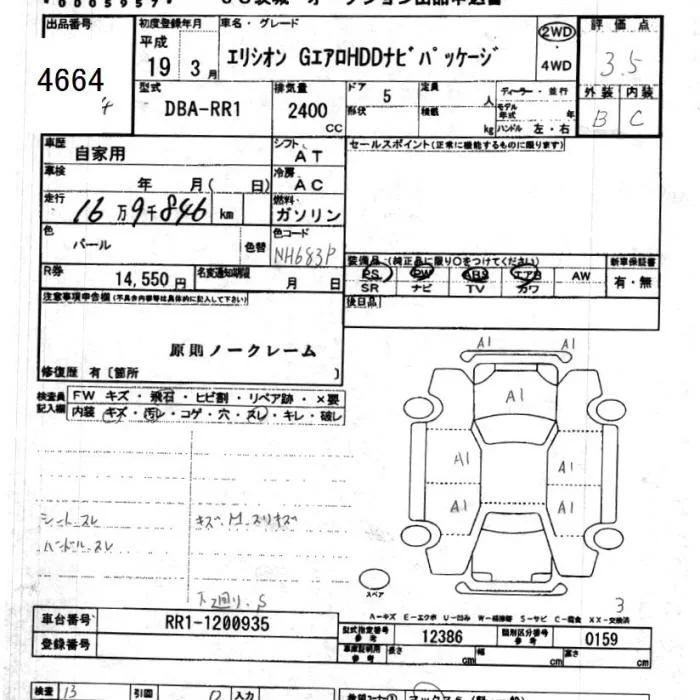 *00059957*
出品番号 初度登録年月 車名・グレード 2WD 評価点
平成
4664 19 3月 エリシオン GエアロHDDナビパッケージ ・4WD 3.5
型式 排気量 ドア 5 定員 人 ディーラー・並行 外装 内装
DBA-RR1 2400 CC 形状 積載 kg モデル年式 年 B C
ハンドル 左・右
車歴 自家用 シフト AT セールスポイント(正常に機能するものに限ります)
車検 年 月( 日) 冷房 AC
走行 16万9千846 km 燃料 ガソリン
色 パール 色替 色コード NH683P
装備品(純正品に限り○をつけてください) 新車保証書
R券 14,550円 名変通知期限 月 日 PS PW ABS エアB AW 有・無
SR ナビ TV カワ
注意事項申告欄(不具合内容等は具体的に記入して下さい) 後日品
原則ノークレーム
修復歴 有〔箇所 〕
検査員記入欄 FW キズ・飛石・ヒビ割・リペア跡・×要
内装 キズ・汚レ・コゲ・穴・スレ・キレ・破レ
A1 A1
A1
A1 A1
A1 A1
シートスレ キズ
ハンドルスレ
下回り.S
スペア
3
A-キズ E-エクボ U-凹み W-補修跡 S-サビ C-腐食 XX-交換済
車台番号 RR1-1200935
型式指定番号 参考 12386 類別区分番号 参考 0159
登録番号 車庫証明用 参考 長さ cm 幅 cm 高さ cm
検査 13 引回 入力